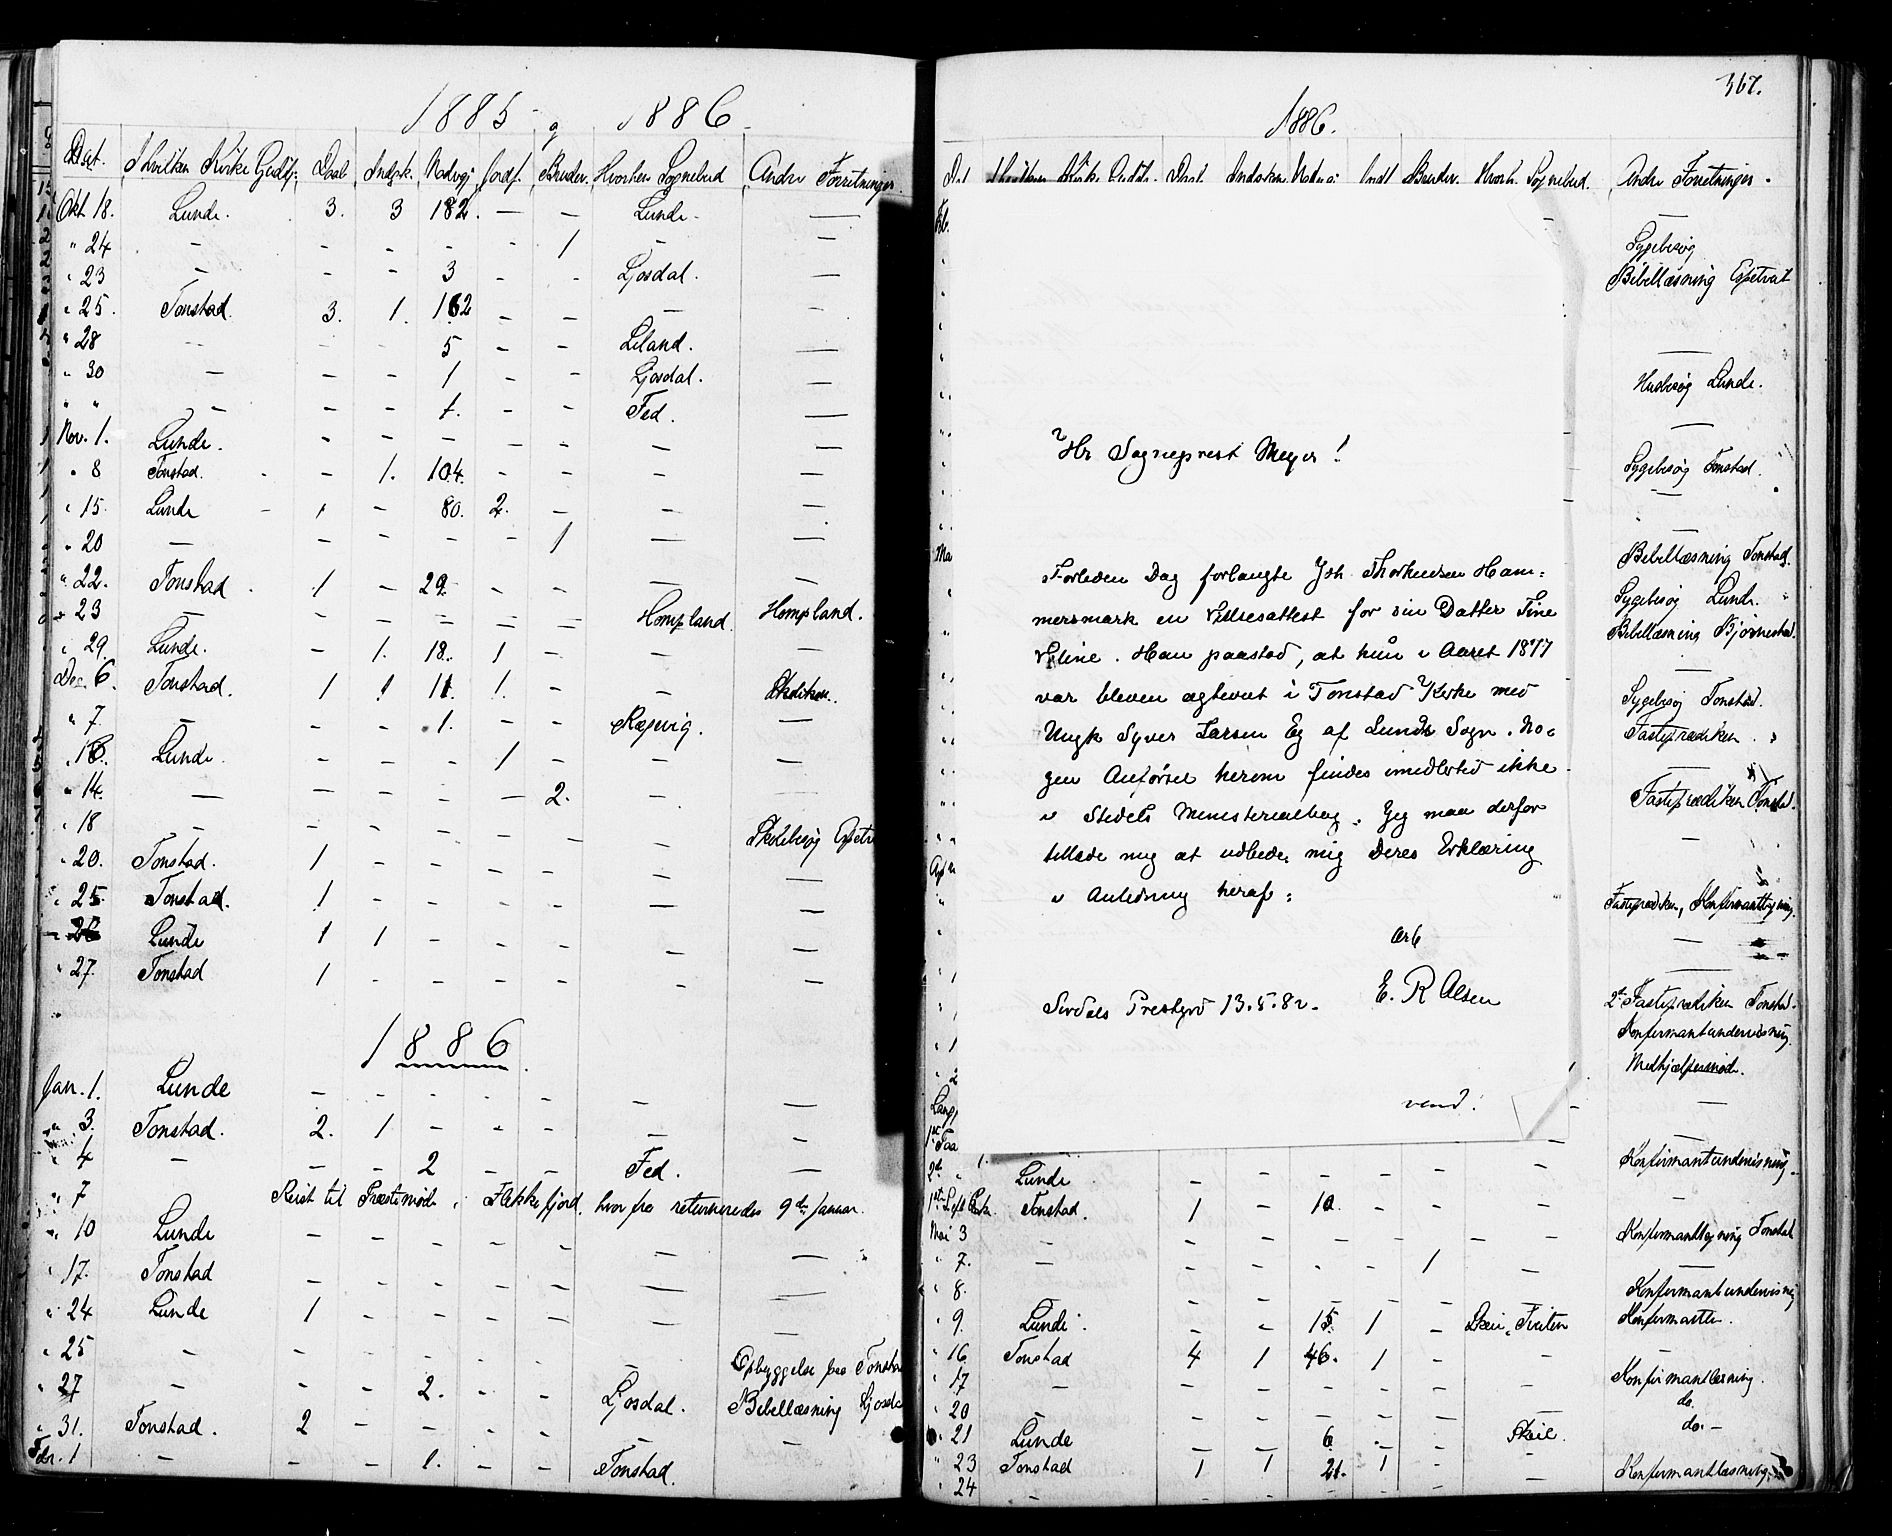 1885 og 1886
Dat. I hvilken Kirke Gudstj. Daab Indsk. Nadvgj. Jordf. Brudev. Hvorhen Sognebud Andre Forretninger.
Okt 18. Lunde. 3. 3 182. — — Lunde — —
" 24 — — — — — 1 — —
" 23 — — — 3 — — Gjosdal. —
" 25. Tonstad. 3. 1. 162 — — — —
" 28 — — — 5 — — Liland. —
" 30 — — — 1 — — Gjosdal. —
" " — — — 1. — — Fed. —
Nov. 1. Lunde. — — — — — — —
" 8 Tonstad. — 1. 104. — — — —
" 15. Lunde 1 — 80. 2. — — —
" 20 — — — — — 1 — —
" 22. Tonstad 1 — 29 — — — —
" 23 — — — — — — Hompland. Hompland.
" 29. Lunde. — 1. 18. 1 — — —
Dec. 6. Tonstad. 1 1 11. 1. — —
" 7. — — — 1. — — Ræsvig. —
Lunde. — — — 1 — — —
" 14. — — — — — 2. — —
" 18 — — — — — — — Skolebesøg
" 20. Tonstad. 1 — — — — — —
" 25. Tonstad. 1 — — — — — —
" 26 Lunde 1 1 — — — — —
" 27. Tonstad 1 — — — — — —
1886.
Jan. 1. Lunde — — — — — — —
" 3. Tonstad. 2. 1 — — — — —
" 4 — — — 2 — — Fed. —
" 7 Reist til Præstemøde i Flekkefjord, hvorfra returneredes 9de Januar.
" 10 Lunde — — — — — — —
" 17. Tonstad — — — — — — —
" 24 Lunde 1 — — — — — —
" 25 — — — — — — — Opbyggelse paa Tonstad
" 27 — — — 2. — — Gjosdal. Bibellæsning Gjosda
" 31. Tonstad. 2 — — — — — —
Febr. 1 — — — 1. — — Tonstad.
367.
1886.
Andre Forretninger.
Sygebesøg
Bibellæsning Espetvat
Husbesøg Lunde.
Sygebesøg Tonstad.
Bibellæsning Tonstad.
Sygebesøg Lunde.
Bibellæsning Bjørnestad.
Sygebesøg Tonstad.
Fasteprædiken
Fasteprædiken Tonstad.
Fasteprædiken, Konfirmantlæsning.
2d Fasteprædiken Tonstad.
Konfirmantundervisning.
Medhjælpermøde.
Hr Sogneprest Meyer!
Forleden Dag forlangte Joh. Thorkildsen Ham=
mersmark en Vielsesattest for sin Datter Tine
Eline. Han paastod, at hun i Aaret 1877
var bleven ægteviet i Tonstad Kirke med
Ungk Syver Larsen Eg af Lunds Sogn. No=
gen Anførsel herom findes imidlertid ikke
i Stedets Ministerialbog. Jeg maa derfor
tillade mig at udbede mig Deres Erklæring
i Anledning heraf:
Ærb
E. R Olsen
Sirdals Prestgrd 13.5.82.
vend!
Konfirmantundervisning.
2d " Lunde — — — — — —
Tonstad. 1 — 10. — — — —
Mai 3 — — — — — — — Konfirmantlæsning Tonstad
" 7. — — — — — 1 —
" 8. — — — — — — Konfirmantundervisning
" 9. Lunde. — — 15. 1 — Konfirmanter.
" 16. Tonstad 4 1 46. 1 — — —
" 17 — — — — — — — Konfirmantlæsning.
" 20 — — — — — — do.
" 21 Lunde — — 6 — — do. —
" 23 Tonstad 1 1 21. 1 — —
" 24 — Konfirmantlæsning.